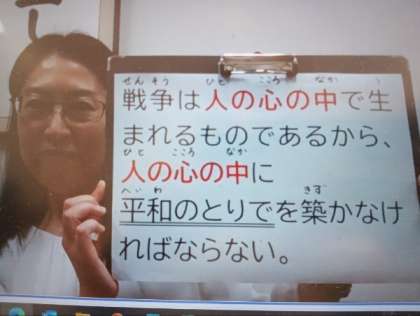 せんそう ひと こころ なか う
戦争は人の心の中で生
まれるものであるから、
ひと こころ なか
人の心の中に
へいわ きず
平和のとりでを築かなけ
ればならない。